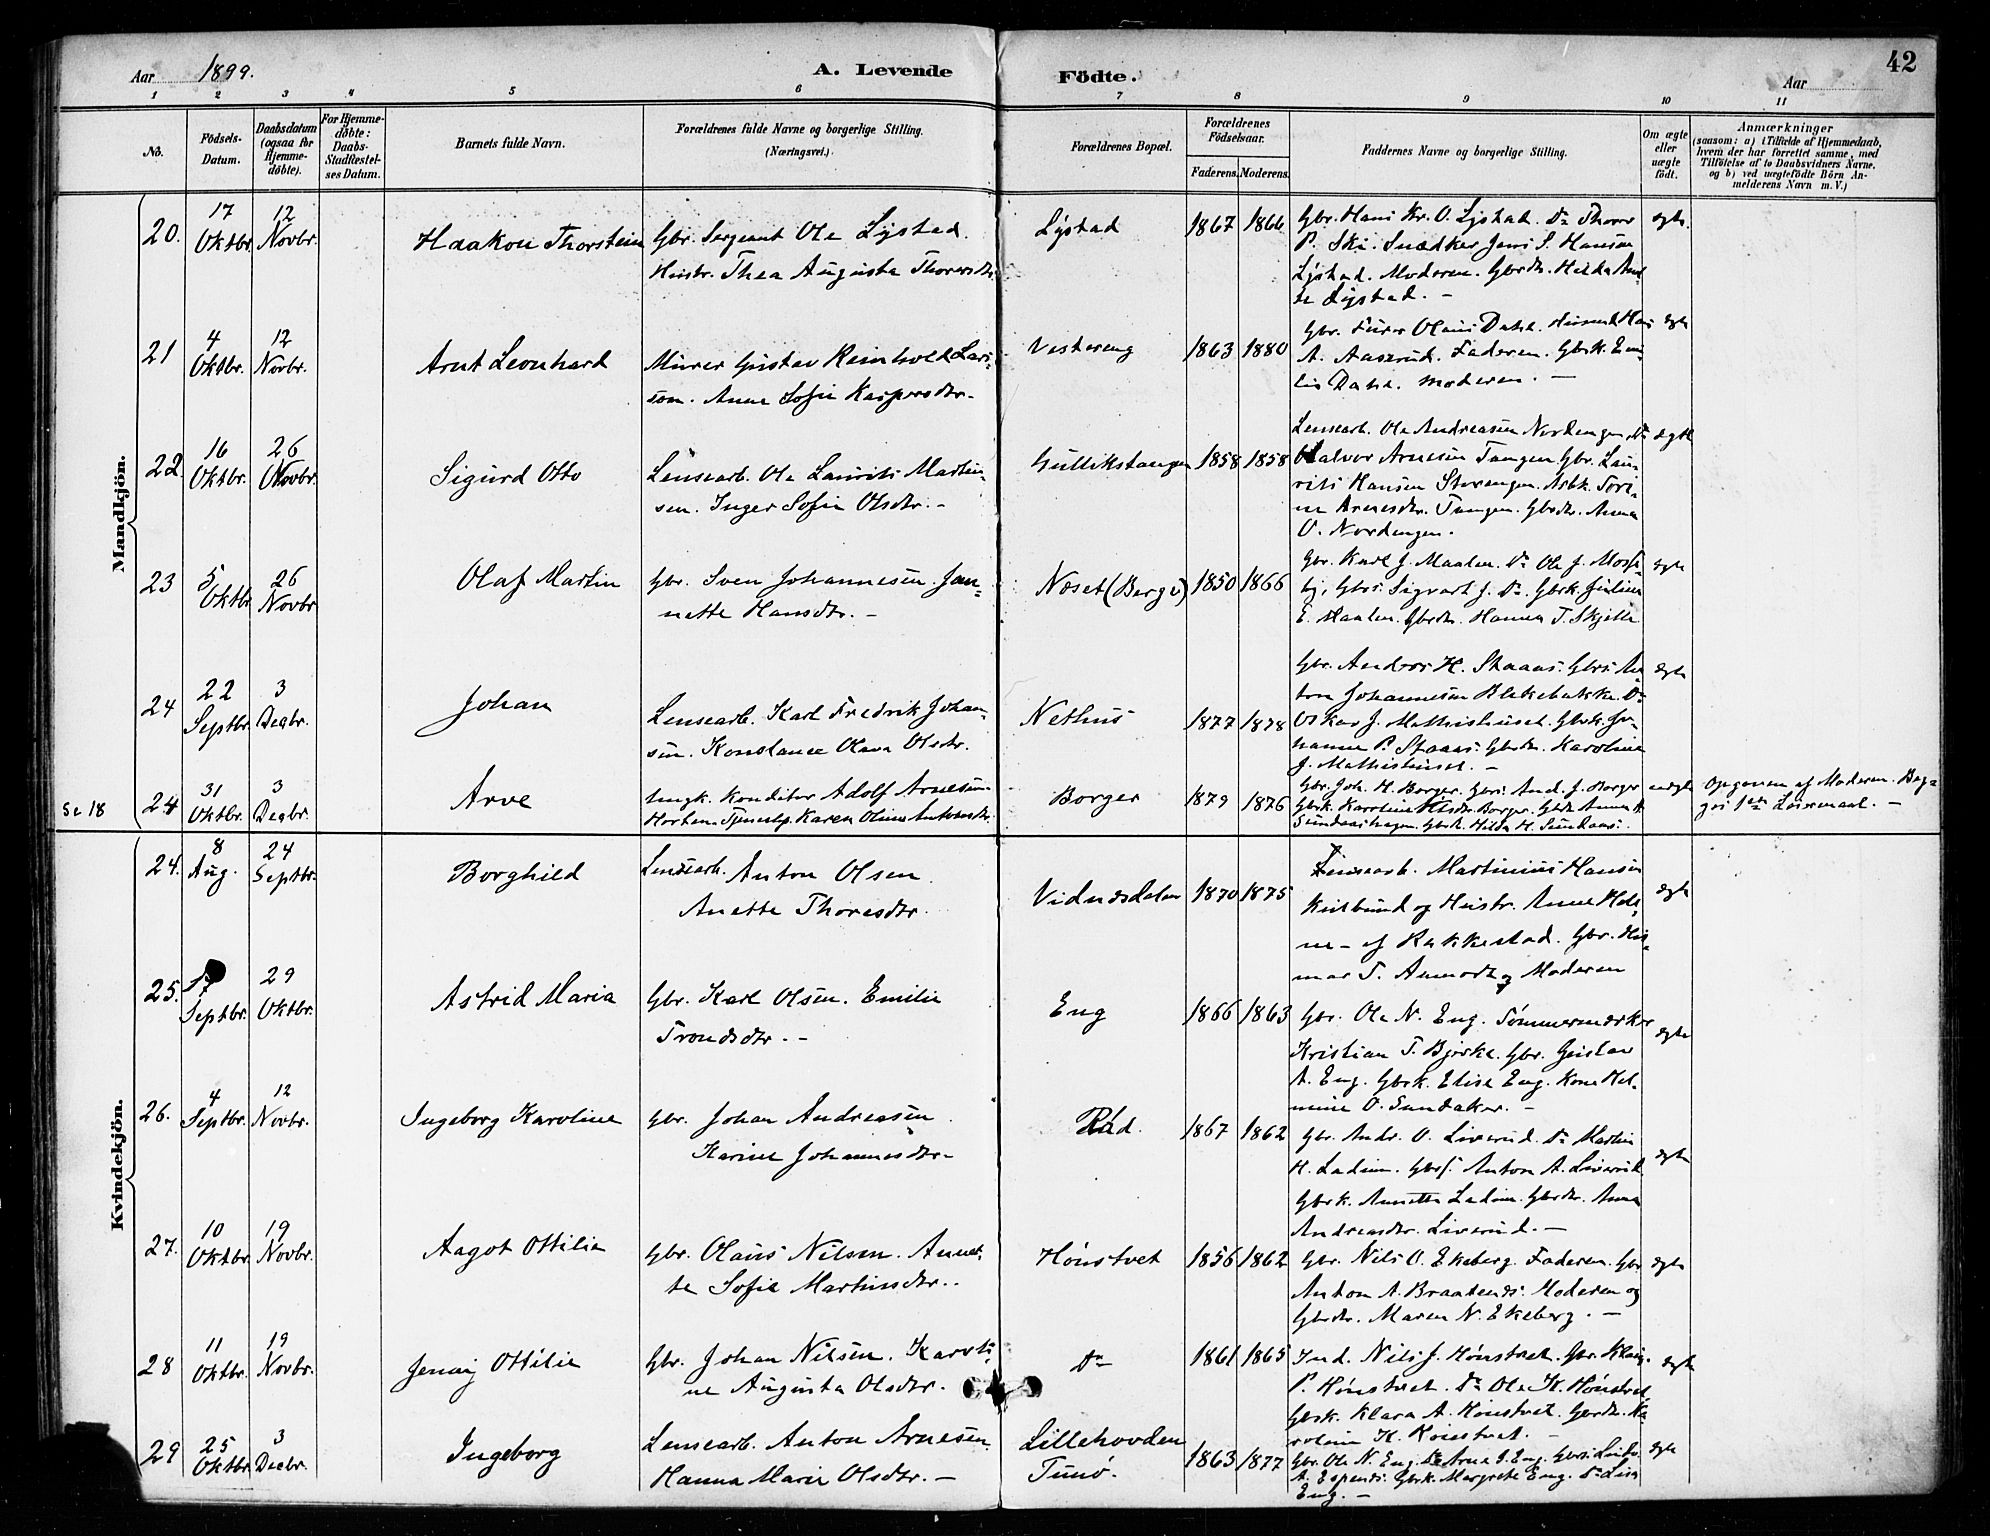 42
Aar 1899.
A. Levende Födte.
Aar
1 2 3 4 5 6 7 8 9 10 11
No.
Födsels-Datum.
Daabsdatum (ogsaa for Hjemmedöbte).
For Hjemmedöbte: Daabs-Stadfæstelses Datum.
Barnets fulde Navn.
Forældrenes fulde Navne og borgerlige Stilling. (Næringsvei.)
Forældrenes Bopæl.
Forældrenes Födselsaar.
Faderens. Moderens.
Faddernes Navne og borgerlige Stilling.
Om ægte eller uægte födt.
Anmærkninger
(saasom: a) i Tilfælde af Hjemmedaab, hvem der har forrettet samme, med Tilföielse af to Daabsvidners Navne. og b) ved uægtefödte Börn Anmelderens Navn m. V.)
Mandkjön.
20. 17 Oktbr. 12 Novbr. Haakon Thorstein
Gbr. Sergeant Ole Lystad.
Husbr. Thea Augusta Thoresdtr.
Lystad 1867 1866
Gbr. Hans Kr. O. Lystad. Do Thore
P. Ski. Snedker Jens S. Hansen
Lystad. Moderen. Gbrdtr. Hilda
Lystad. —
ægte.
21 4 Oktbr. 12 Novbr. Arnt Leonhard
Murer Gustav Reinhold Lars-
son. Anne Sofie Kaspersdtr.
Vestereng 1863 1880
Gbr. Olaus Dahl. Husmd. Hans
A. Aaserud. Faderen. Gbrk. Emi-
lie Dahl. Moderen. —
ægte
22 16 Oktbr. 26 Novbr. Sigurd Otto
Lensearb. Ole Laurits Martin-
sen. Inger Sofie Olsdtr. —
Gullikstangen 1858 1858
Lensearb. Ole Andreasen Nordengen, Do
Halvor Arnesen Tangen. Gbr. Lau-
rits Hansen Storengen. Arbk. Tori-
ne Arnesdtr. Tangen. Gbrdtr. Anna
O. Nordengen.
ægte
23 5 Oktbr. 26 Novbr Olaf Martin
Gbr. Sven Johannesen. Jan-
nette Hansdtr. —
Næset (Berg ) 1850 1866
Gbr. Karl J. Maalen. Do Ole J. Mosse-
by, Gbrs. Sigvart J. Do. Gbrk. Juline
E. Maalen. Gbrdtr. Hanna T. Skjelle
ægte
24 22 Septbr. 3 Decbr. Johan
Lensearb. Karl Fredrik Johan-
sen. Konstance Olava Olsdtr.
Nethus 1877 1878
Gbr. Andres H. Staaas. Gbrs. An-
ton Johannesen Blekebakke. Do
Oskar J. Mathishuset. Gbrk. Jo-
hanne P. Staaas. Gbrdtr. Karoline
J. Mathishuset. —
ægte
Se 18 24 31 Oktbr. 3 Decbr. Arve
Ungk. Konditor Adolf Arnesen
Horten. Karen Oline Antonsdtr.
Borger 1879 1876
Gbr. Joh. H. Borger. Gbrs. And. J. Borger
Gbrk. Karoline Nilsdtr. Borger. Gbrdtr. Anna
Sundaashagen. Gbrdtr. Hilda H. Sundaas.
uægte
Opgaven af Moderen. Beg-
ges 1ste Leiermaal. —
Kvindekjön.
24. 8 Aug. 24 Septbr. Borghild
Lensearb. Anton Olsen.
Anette Thoresdtr.
Vidnesdalen 1870 1875
Lensearb. Martinius Hansen
Kulbund og Hustr. Anne Hele-
ne — af Rakkestad. Gbr. Hil-
mar T. og Moderen
ægte
25. Septbr. 29 Oktbr. Astrid Maria
Gbr. Karl Olsen. Emilie
Trondsdtr. —
Eng 1866 1863
Gbr. Ole N. Eng. Tömmermærker
Kristian T. Bjerke. Gbr. Gustav
A. Eng. Gbrk. Elise Eng. Kone Hel-
mine O. Sundaker. —
ægte
26. 4 Septbr. 12 Novbr. Ingeborg Karoline
Gbr. Johan Andreasen.
Karine Johannesdtr.
Råd. 1867 1862
Gbr. Andr. O. Liverud. Do Martin
H. Ladim. Gbrs. Anton A. Liverud.
Gbrk. Annette Ladim. Gbrdtr. Anna
Andreasdtr. Liverud. —
ægte
27. 10 Oktbr. 19 Novbr. Aagot Ottilie
Gbr. Olaus Nilsen. Annet-
te Sofie Martinsdtr. —
Hönstvet 1856 1862
Gbr. Nils O. Ekeberg. Faderen. Gbr
Anton A. Braatends. Moderen og
Gbrdtr. Maren N. Ekeberg. —
ægte
28 11 Oktbr. 19 Novbr. Jenny Ottilie
Gbr. Johan Nilsen. Karoli-
ne Augusta Olsdtr.
Do 1861 1865
Ind. Nils J. Hönstvet. Gbr. Klaus
P. Hönstvet. Do Ole K. Hönstvet
Gbrk. Klara A. Hönstvet. Gbrdtr. Ka-
roline K. Hönstvet. —
ægte
29 25 Oktbr 3 Decbr. Ingeborg
Lensearb. Anton Arnesen.
Hanna Marie Olsdtr. —
Lillehovden
Tunö. 1863 1877
Gbr. Ole N. Eng. Do Arne O. Eng. Gbrs. Ludv.
A. Espenes. Gbrk. Margrete Eng. Do Lisa
Eng. —
ægte